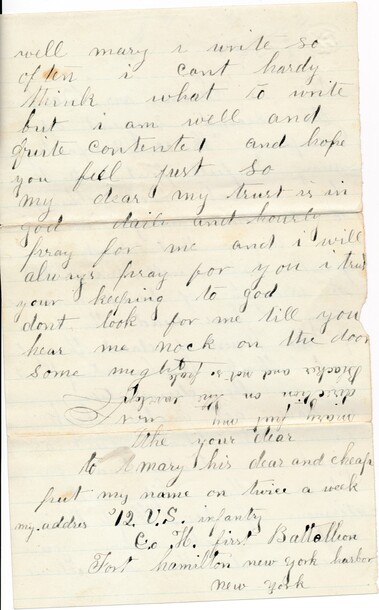 well mary i write so
often i cant hardy
think what to write
but i am well and
quite contented and hope
you feel just so
my dear my trust is in
god daily and hourly
pray for me and i will
always pray for you i trust
your keeping to god
dont look for me till you
hear me nock on the door
some night
blacker and not so pale
direction on
mary put my
the your diar
to mary his dear and cheap
put my name on twice a week
my addres 12. U.S. infanty
Co H. first Battellion
Fort hamilton new york harbor
new york